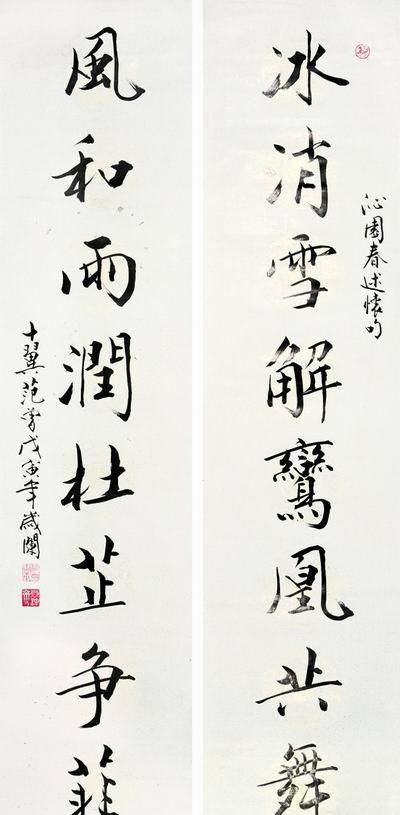 沁園春述懷句
冰消雪解鸞凰共舞
風和雨潤杜芷争
十翼范曾戊寅年歲闌